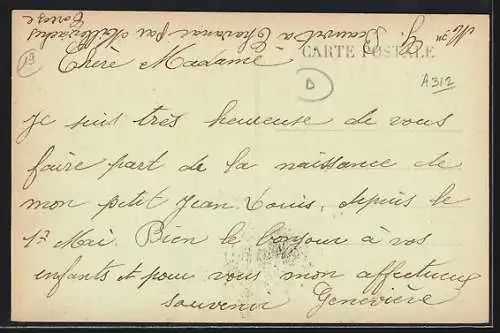 Mon G. Beauvert à Chavanac par Millevaches
Corrèze
CARTE POSTALE
19
D
A312
Chère Madame
Je suis très heureuse de vous
faire part de la naissance de
mon petit Jean Louis, depuis le
17 Mai. Bien le bonjour à vos
enfants et pour vous mon affectueux
souvenir Geneviève